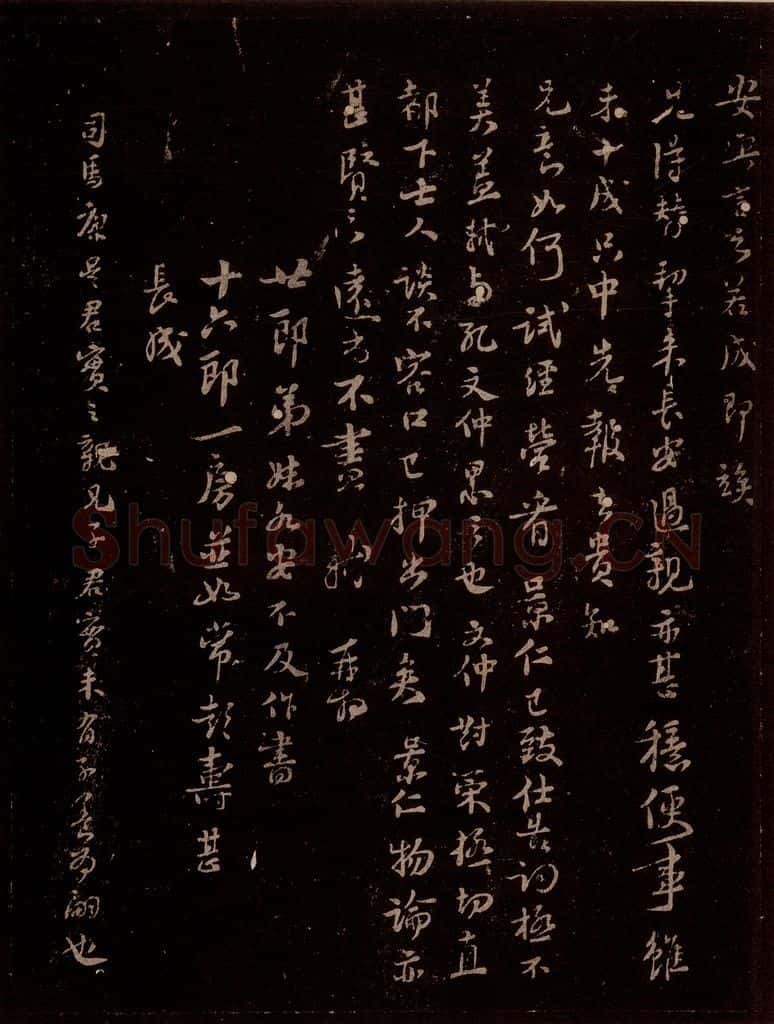 言之若成即俟
兄得替挈来長安過親亦甚穩便事雖
未十成只中先報去貴知
兄意如何試經營看景仁已致仕告詞極不
美蓋軾與孔文仲累之也文仲對策極切直
都下士人談不容口已押出門矣景仁物論亦
甚賢之遠書不盡軾再拜
廿郎弟妹各安不及作書
十六郎一房並如常彭壽甚
長成
司馬康是君實之親兄子君實未有子養為嗣也
Shufawang.CN